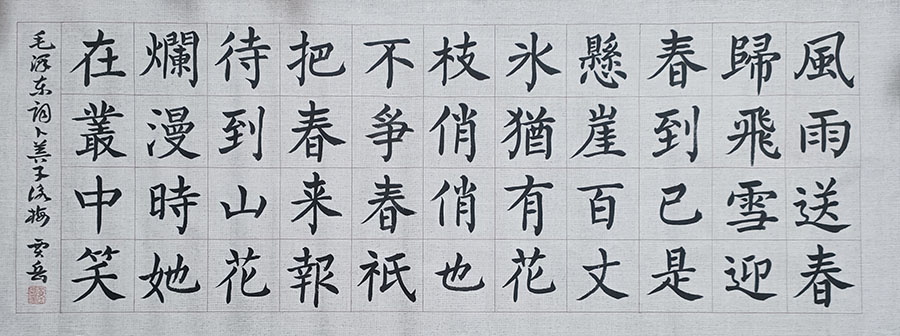 風雨送春
歸飛雪迎
春到已是
懸崖百丈
氷猶有花
枝俏俏也
不爭春祇
把春来報
待到山花
爛漫時她
在叢中笑
毛泽东词卜算子咏梅